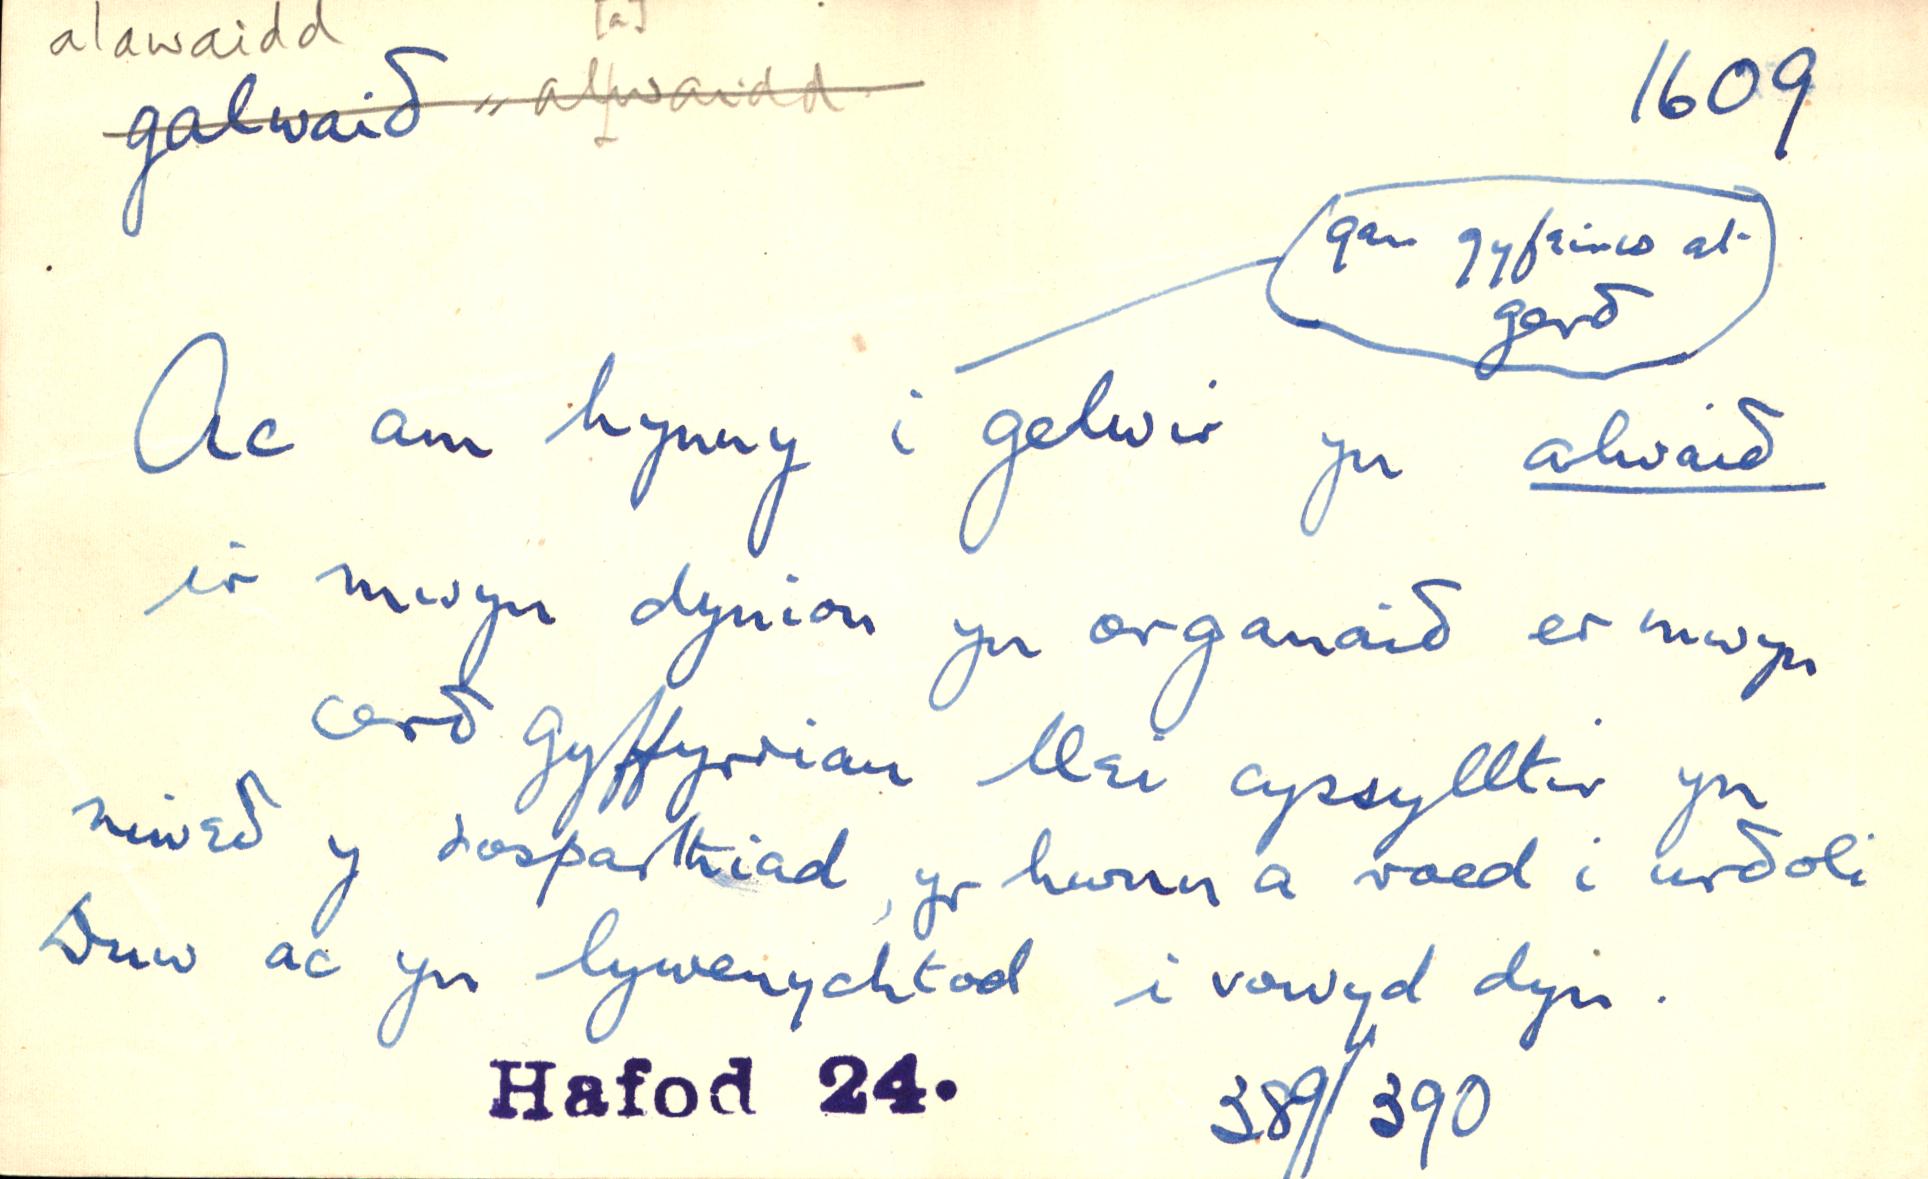 alawaidd
[a]
galwaið " alwaidd
1609
gan gyfeirio at
gerð
Ac am hynny i gelwir yn alwaið
ir mwyn dynion yn organaið er mwyn
cerð gyffyrrian llei cyssylltir yn
niweð y dosparthiad, yr hwnn a roed i urðoli
Duw ac yn lywenychtod i vowyd dyn.
Hafod 24.
389/390